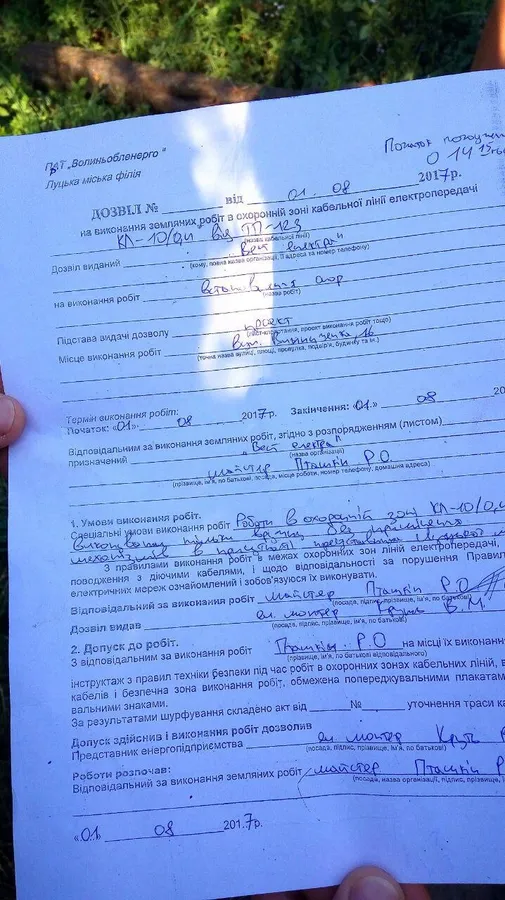 ПАТ „Волиньобленерго"
Луцька міська філія
Початок
о 14 15
ДОЗВІЛ № ________ від ________ 01. 08 ________ 2017р.
на виконання земляних робіт в охоронній зоні кабельної лінії електропередачі
КЛ-10/0,4 від ТП-123
(назва кабельної лінії)
Дозвіл виданий „Вей електра"
(кому, повна назва організації, її адреса та номер телефону)
на виконання робіт встановлення опор
(назва робіт)
Підстава видачі дозволу проект
(лист-клопотання, проект виконання робіт тощо)
Місце виконання робіт вул. Винниченка 16
(точна назва вулиці, площі, провулка, подвір'я, будинку та ін.)
Термін виконання робіт:
Початок: «01» 08 2017р. Закінчення: «01» 08 20
Відповідальним за виконання земляних робіт, згідно з розпорядженням (листом)
призначений „Вей електра"
(назва організації)
майстер Пташкін Р.О
(прізвище, ім'я, по батькові, посада, місце роботи, номер телефону, домашня адреса)
1. Умови виконання робіт.
Спеціальні умови виконання робіт Роботи в охоронній зоні КЛ-10/0,4
виконувати тільки вручну без
механізмів в присутності представника
З правилами виконання робіт в межах охоронних зон ліній електропередачі,
поводження з діючими кабелями, і щодо відповідальності за порушення Правил
електричних мереж ознайомлений і зобов'язуюся їх виконувати.
Відповідальний за виконання робіт майстер Пташкін Р.О
(посада, підпис, прізвище, ім'я, по батькові)
Дозвіл видав ел. монтер В.М
(посада, підпис, прізвище, ім'я, по батькові)
2. Допуск до робіт.
З відповідальним за виконання робіт Пташкін Р.О на місці їх виконання
(прізвище, ім'я, по батькові відповідального)
інструктаж з правил техніки безпеки під час робіт в охоронних зонах кабельних ліній, в
кабелів і безпечна зона виконання робіт, обмежена попереджувальними плакатами
вальними знаками.
За результатами шурфування складено акт від ________ № ________ уточнення траси ка
Допуск здійснив і виконання робіт дозволив
Представник енергопідприємства ел. монтер
(посада, підпис, прізвище, ім'я, по батькові)
Роботи розпочав:
Відповідальний за виконання земляних робіт майстер Пташкін Р
(посада, назва організації, підпис, прізвище, ім
«01» 08 2017р.